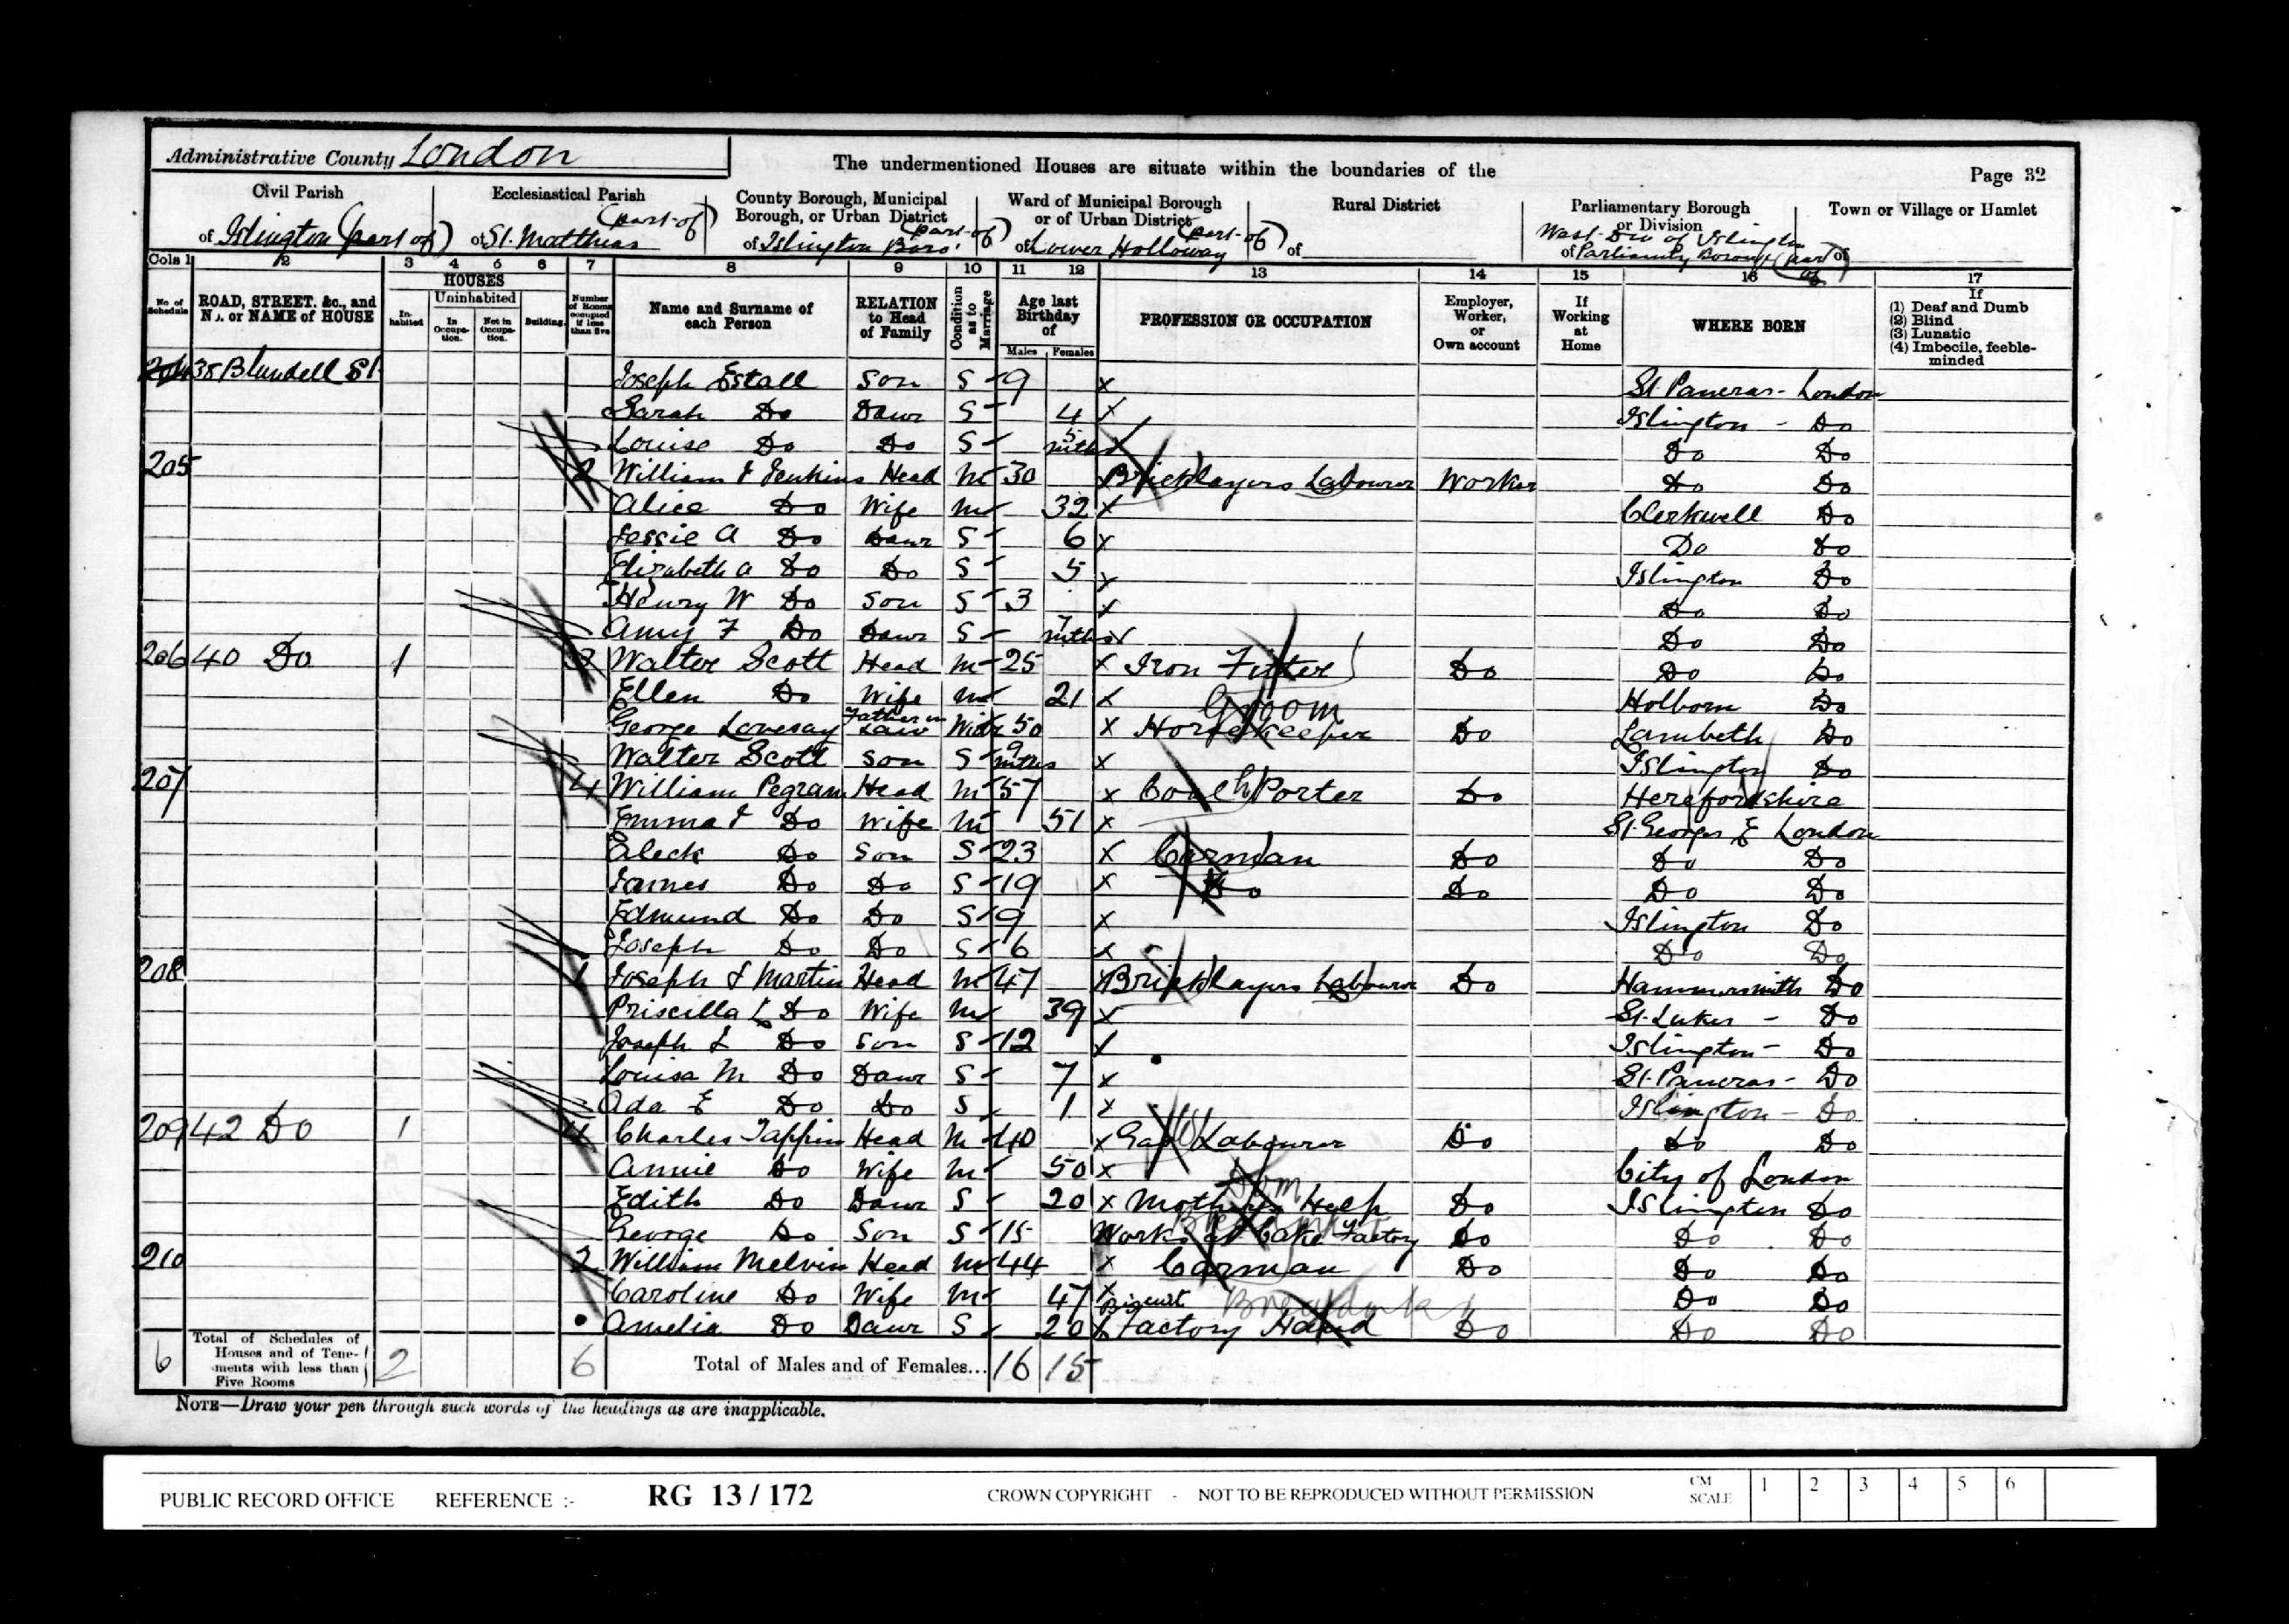 Administrative County London
The undermentioned Houses are situate within the boundaries of the
Page 32
Civil Parish
of Islington (part of)
Ecclesiastical Parish
of St. Matthias (part of)
County Borough, Municipal
Borough, or Urban District
of Islington Boro' (part of)
Ward of Municipal Borough
or of Urban District
of Lower Holloway (part of)
Rural District
of
Parliamentary Borough
or Division
West Div of Islington
of Parliamty Borough (part of)
Town or Village or Hamlet
of
Cols 1 2 3 4 5 6 7 8 9 10 11 12 13 14 15 16 17
No of Schedule
ROAD, STREET. &c., and No. or NAME of HOUSE
HOUSES
Inhabited
Uninhabited
In Occupation.
Not in Occupation.
Building.
Number of Rooms occupied if less than five
Name and Surname of each Person
RELATION to Head of Family
Condition as to Marriage
Age last Birthday of
Males Females
PROFESSION OR OCCUPATION
Employer, Worker, or Own account
If Working at Home
WHERE BORN
If
(1) Deaf and Dumb
(2) Blind
(3) Lunatic
(4) Imbecile, feeble-minded
204 38 Blundell St Joseph Estall Son S 9 x St. Pancras - London
Sarah Do Daur S 4 x Islington - Do
Louise Do Do S 5 mths Do Do
205 2 William J Jenkins Head M 30 x Bricklayers Labourer Worker Do Do
Alice Do Wife M 32 x Clerkwell Do
Jessie A Do Daur S 6 x Do Do
Elizabeth A Do Do S 5 x Islington Do
Henry W Do Son S 3 x Do Do
Amy F Do Daur S 7 mths Do Do
206 40 Do 1 3 Walter Scott Head M 25 x Iron Fitter Do Do Do
Ellen Do Wife M 21 x Holborn Do
Groom
George Lovesay Father in Law Widr 50 x Horse Keeper Do Lambeth Do
Walter Scott Son S 9 mths x Islington Do
207 4 William Pegram Head M 57 x Coal Porter Do Herefordshire
Emma J Do Wife M 51 x St. Georges E London
Aleck Do Son S 23 x Carman Do Do Do
James Do Do S 19 x Do Do Do Do
Edmund Do Do S 9 x Islington Do
Joseph Do Do S 6 x Do Do
208 1 Joseph J Martin Head M 47 x Bricklayers Labourer Do Hammersmith Do
Priscilla L Do Wife M 39 x St. Lukes - Do
Joseph L Do Son S 12 x Islington - Do
Louisa M Do Daur S 7 x St. Pancras - Do
Ada E Do Do S 1 x Islington - Do
209 42 Do 1 4 Charles Tappin Head M 40 x Gas Labourer Do Do Do
Annie Do Wife M 50 x City of London
Dom
Edith Do Daur S 20 x Mothers Help Do Islington Do
George Do Son S 15 Works at Cake Factory Do Do Do
210 2 William Melvin Head M 44 x Carman Do Do Do
Caroline Do Wife M 47 x Do Do
Amelia Do Daur S 20 x Biscuit Factory Hand Do Do Do
6 Total of Schedules of Houses and of Tenements with less than Five Rooms 2 6 Total of Males and of Females... 16 15
NOTE—Draw your pen through such words of the headings as are inapplicable.
PUBLIC RECORD OFFICE REFERENCE :- RG 13 / 172 CROWN COPYRIGHT - NOT TO BE REPRODUCED WITHOUT PERMISSION CM SCALE 1 2 3 4 5 6